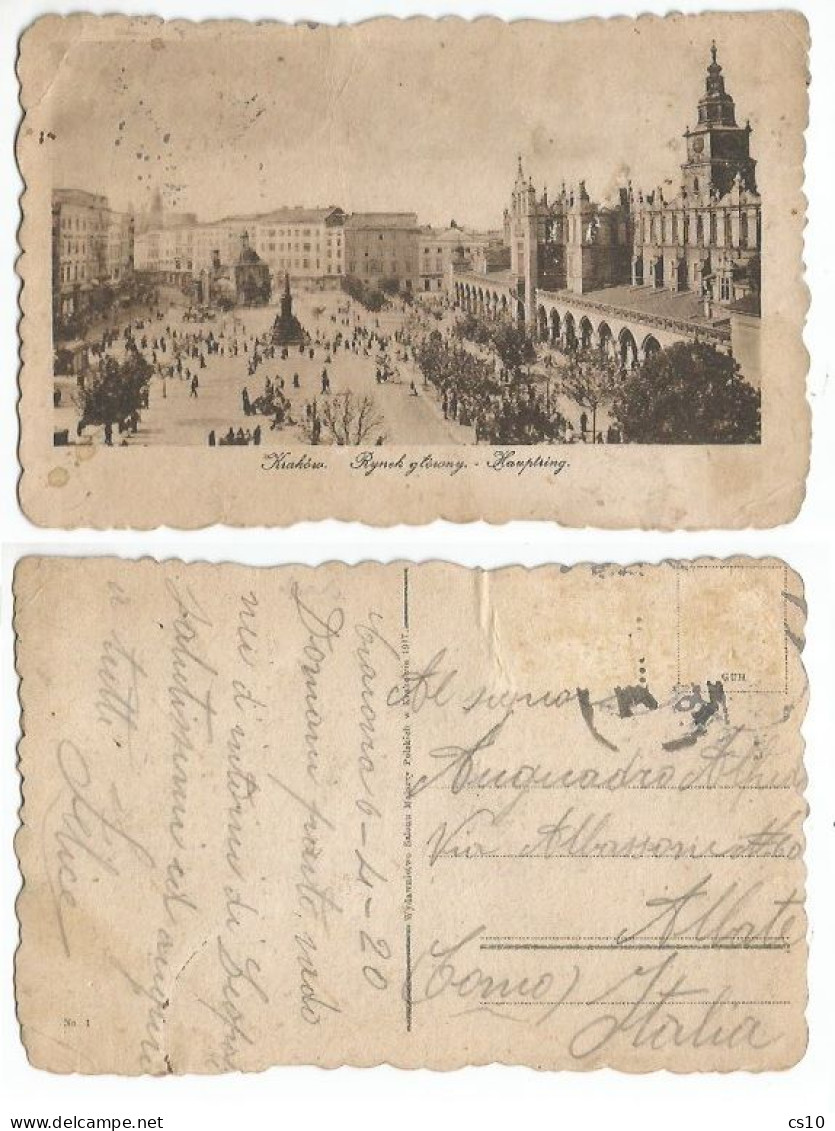 Kraków. Rynek główny. - Hauptring.
Cracovia 6-4-20
Domani parto, vado
nei d'intorni di
salutissimi ed auguri
a tutti
Felice
Wydawnictwo Salonu Malarzy Polskich w Krakowie 1917.
No. 1
GUH
Al signor
Anguadro Alfredo
Via
Albate
(Como) Italia
cs10